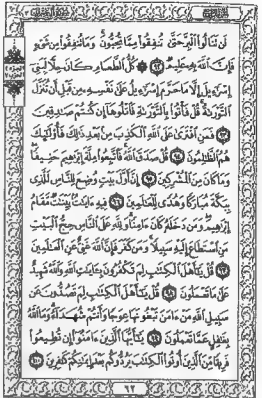 لَن تَنَالُوا۟ ٱلْبِرَّ حَتَّىٰ تُنفِقُوا۟ مِمَّا تُحِبُّونَ ۚ وَمَا تُنفِقُوا۟ مِن شَىْءٍ
فَإِنَّ ٱللَّهَ بِهِۦ عَلِيمٌ ﴿٩٢﴾ كُلُّ ٱلطَّعَامِ كَانَ حِلًّا لِّبَنِىٓ
إِسْرَٰٓءِيلَ إِلَّا مَا حَرَّمَ إِسْرَٰٓءِيلُ عَلَىٰ نَفْسِهِۦ مِن قَبْلِ أَن تُنَزَّلَ
ٱلتَّوْرَىٰةُ ۗ قُلْ فَأْتُوا۟ بِٱلتَّوْرَىٰةِ فَٱتْلُوهَآ إِن كُنتُمْ صَـٰدِقِينَ
﴿٩٣﴾ فَمَنِ ٱفْتَرَىٰ عَلَى ٱللَّهِ ٱلْكَذِبَ مِنۢ بَعْدِ ذَٰلِكَ فَأُو۟لَـٰٓئِكَ
هُمُ ٱلظَّـٰلِمُونَ ﴿٩٤﴾ قُلْ صَدَقَ ٱللَّهُ ۗ فَٱتَّبِعُوا۟ مِلَّةَ إِبْرَٰهِيمَ حَنِيفًا
وَمَا كَانَ مِنَ ٱلْمُشْرِكِينَ ﴿٩٥﴾ إِنَّ أَوَّلَ بَيْتٍ وُضِعَ لِلنَّاسِ لَلَّذِى
بِبَكَّةَ مُبَارَكًا وَهُدًى لِّلْعَـٰلَمِينَ ﴿٩٦﴾ فِيهِ ءَايَـٰتٌۢ بَيِّنَـٰتٌ مَّقَامُ
إِبْرَٰهِيمَ ۖ وَمَن دَخَلَهُۥ كَانَ ءَامِنًا ۗ وَلِلَّهِ عَلَى ٱلنَّاسِ حِجُّ ٱلْبَيْتِ
مَنِ ٱسْتَطَاعَ إِلَيْهِ سَبِيلًا ۚ وَمَن كَفَرَ فَإِنَّ ٱللَّهَ غَنِىٌّ عَنِ ٱلْعَـٰلَمِينَ
﴿٩٧﴾ قُلْ يَـٰٓأَهْلَ ٱلْكِتَـٰبِ لِمَ تَكْفُرُونَ بِـَٔايَـٰتِ ٱللَّهِ وَٱللَّهُ شَهِيدٌ
عَلَىٰ مَا تَعْمَلُونَ ﴿٩٨﴾ قُلْ يَـٰٓأَهْلَ ٱلْكِتَـٰبِ لِمَ تَصُدُّونَ عَن
سَبِيلِ ٱللَّهِ مَنْ ءَامَنَ تَبْغُونَهَا عِوَجًا وَأَنتُمْ شُهَدَآءُ ۗ وَمَا ٱللَّهُ
بِغَـٰفِلٍ عَمَّا تَعْمَلُونَ ﴿٩٩﴾ يَـٰٓأَيُّهَا ٱلَّذِينَ ءَامَنُوٓا۟ إِن تُطِيعُوا۟
فَرِيقًا مِّنَ ٱلَّذِينَ أُوتُوا۟ ٱلْكِتَـٰبَ يَرُدُّوكُم بَعْدَ إِيمَـٰنِكُمْ كَـٰفِرِينَ ﴿١٠٠﴾
٦٢